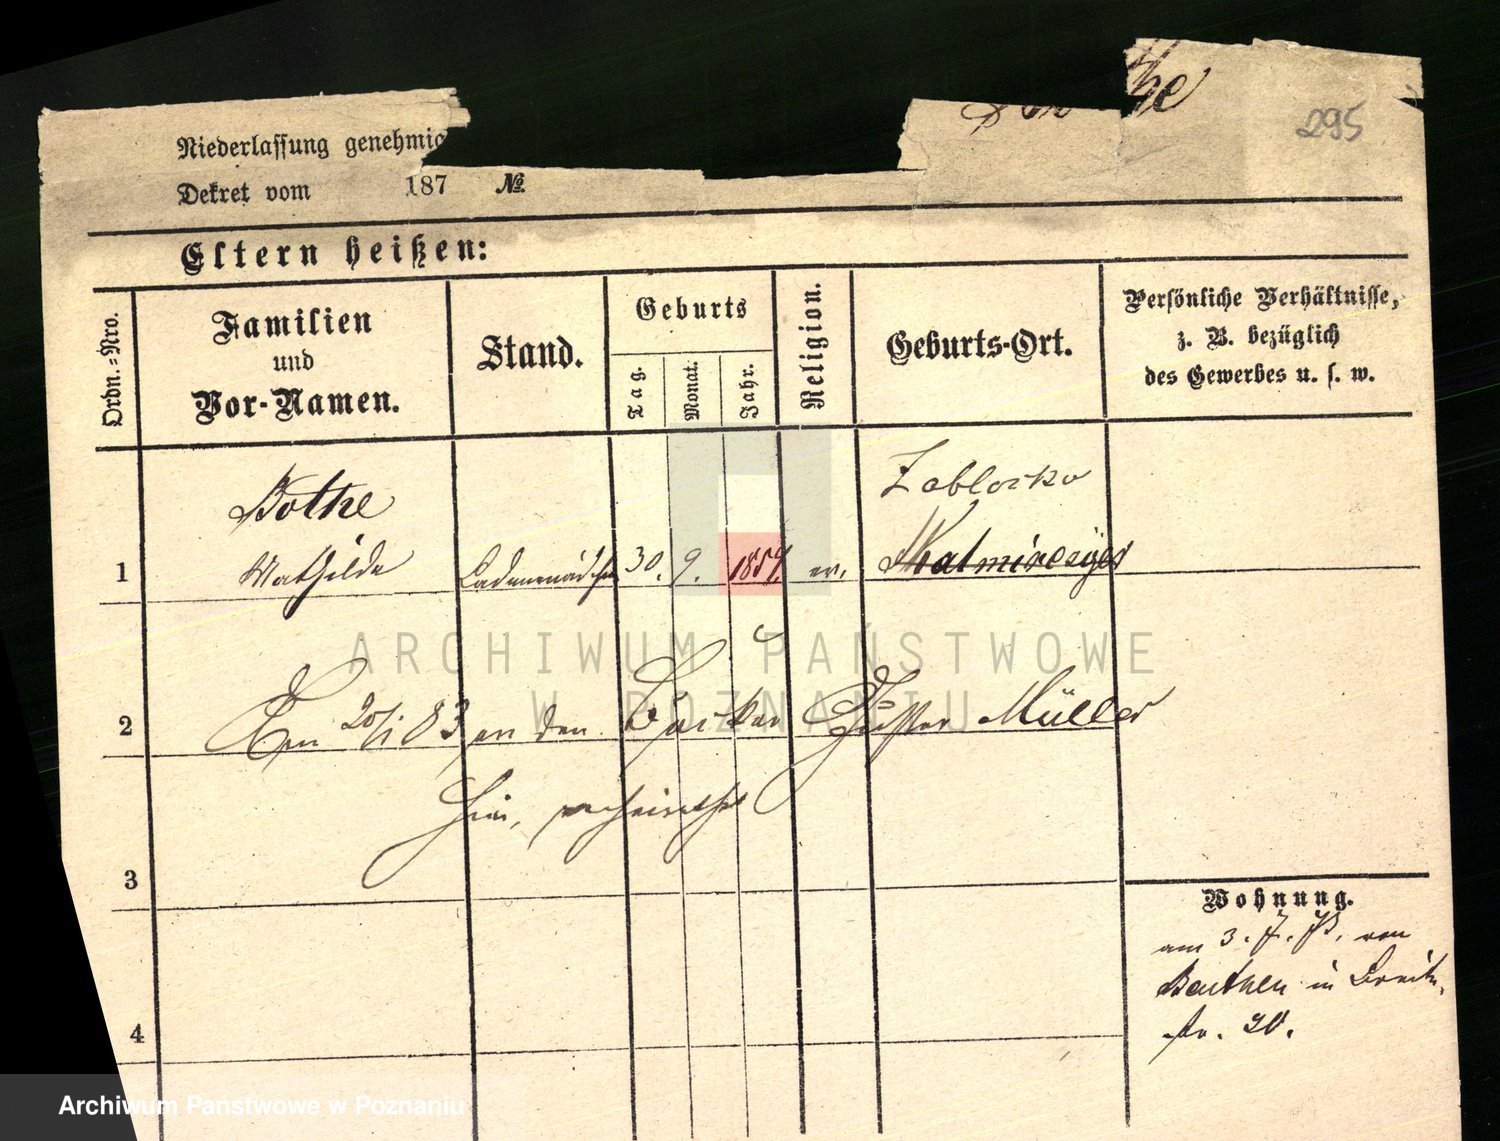 Bothe
295
Niederlassung genehmig
Dekret vom 187 №
Eltern heißen:
Ordn.=Nro.
Familien
und
Vor-Namen.
Stand.
Geburts
Tag.
Monat.
Jahr.
Religion.
Geburts-Ort.
Persönliche Verhältnisse,
z. B. bezüglich
des Gewerbes u. s. w.
Bothe
Zablocko
1 Mathilde Ladenmädchen 30. 9. 1859. ev.
ARCHIWUM PAŃSTWOWE
W POZNANIU
2 Am 20/1 83 an den Bäcker Gustav Müller
hier, verheirathet
3
Wohnung.
am 3. 7. von
Beuthen in Breite-
str. 20.
4
Archiwum Państwowe w Poznaniu